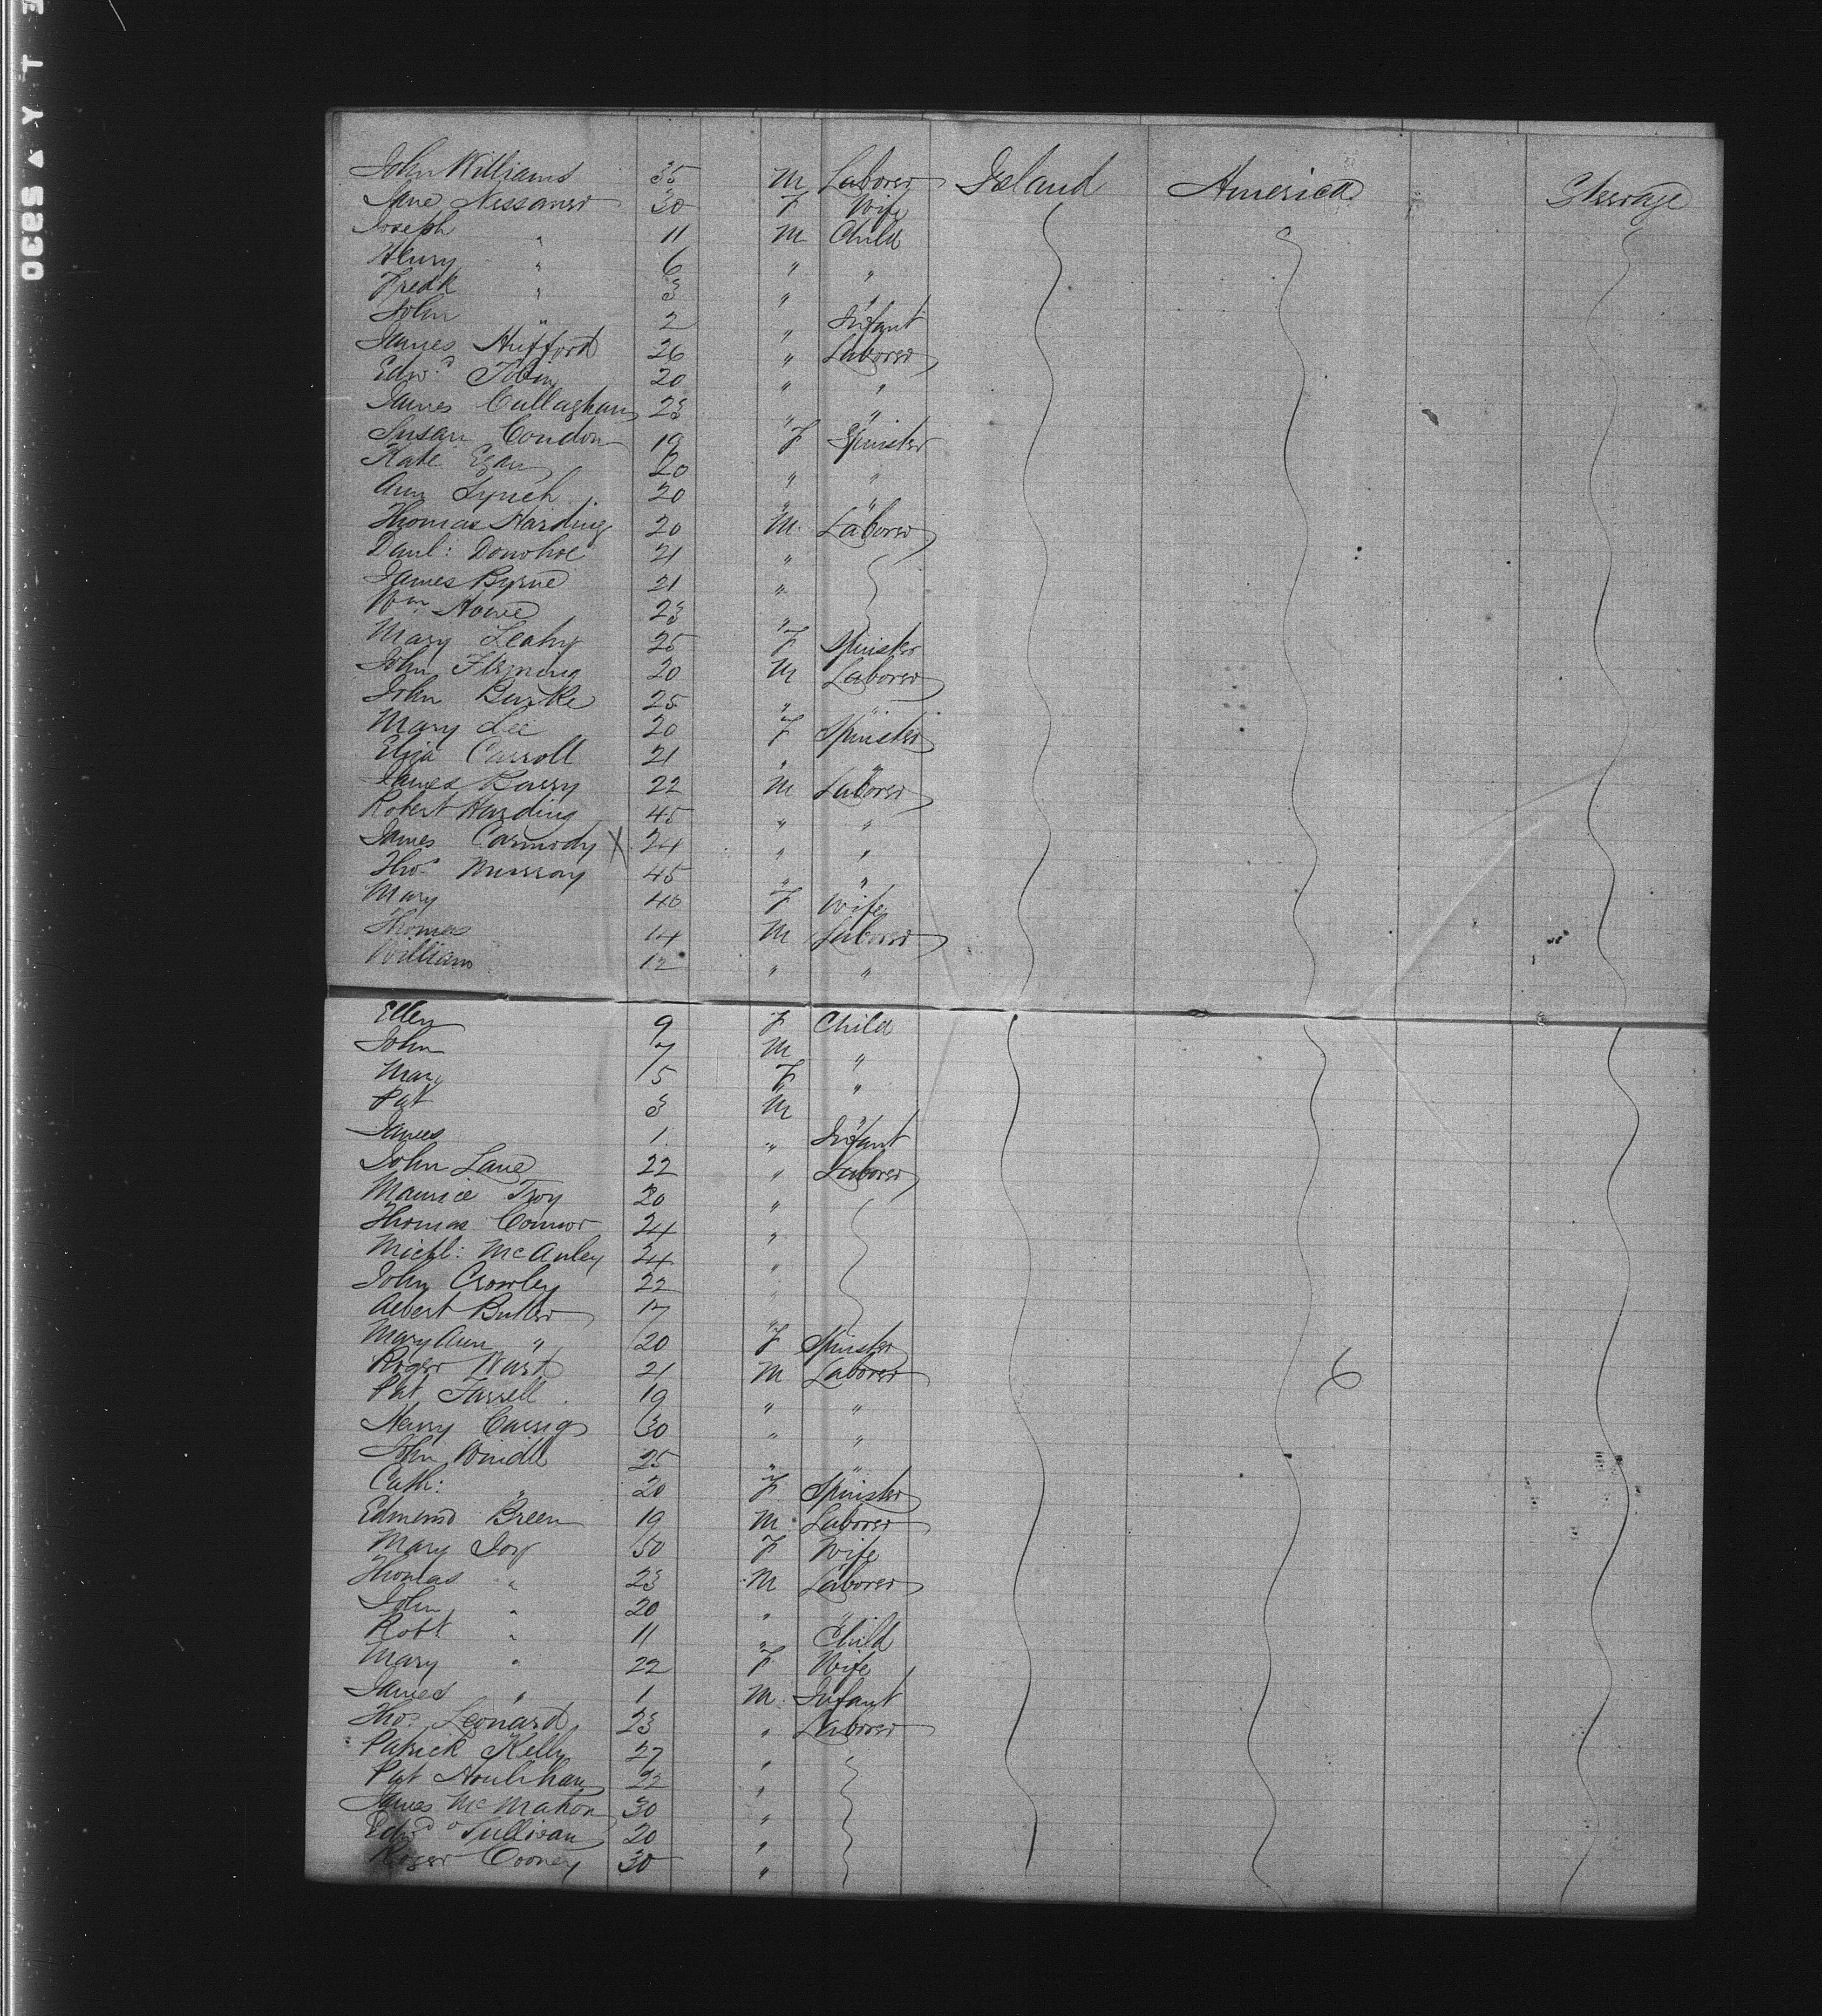 John Williams 35 M Laborer Ireland America Steerage
Jane Nessamer 30 F Wife
Joseph " 11 M Child
Henry " 6 " "
Fredk " 3 " "
John " 2 " Infant
James Hufford 26 " Laborer
Edwd Tobin 20 " "
James Callaghan 23 " "
Susan Condon 19 F Spinster
Kate Egan 20 " "
Ann Lynch 20 " "
Thomas Harding 20 M Laborer
Danl: Donohoe 21 "
James Byrne 21 "
Wm Howe 23 "
Mary Leahy 25 F Spinster
John Fleming 20 M Laborer
John Burke 25 " "
Mary Lee 20 F Spinster
Eliza Carroll 21 " "
James Barry 22 M Laborer
Robert Harding 45 " "
James Carmody X 24 " "
Thos Murray 45 " "
Mary 40 F Wife
Thomas 14 M Laborer
William 12 " "
Ellen 9 F Child
John 7 M "
Mary 5 F "
Pat 3 M "
James 1 " Infant
John Lane 22 " Laborer
Maurice Troy 20 "
Thomas Connor 24 "
Michl: McAuley 24 "
John Crowley 22 "
Albert Butler 17 "
Mary Ann " 20 F Spinster
Roger West 21 M Laborer
Pat Farrell 19 " "
Henry Carrig 30 " "
John Windle 25 " "
Cath: " 20 F Spinster
Edmond Breen 19 M Laborer
Mary Joy 50 F Wife
Thomas " 23 M Laborer
John " 20 " "
Robt " 11 " Child
Mary " 22 F Wife
James " 1 M Infant
Thos Leonard 23 " Laborer
Patrick Kelly 27 "
Pat Houlihan 22 "
James McMahon 30 "
Edwd O'Sullivan 20 "
Roger Cooney 30 "